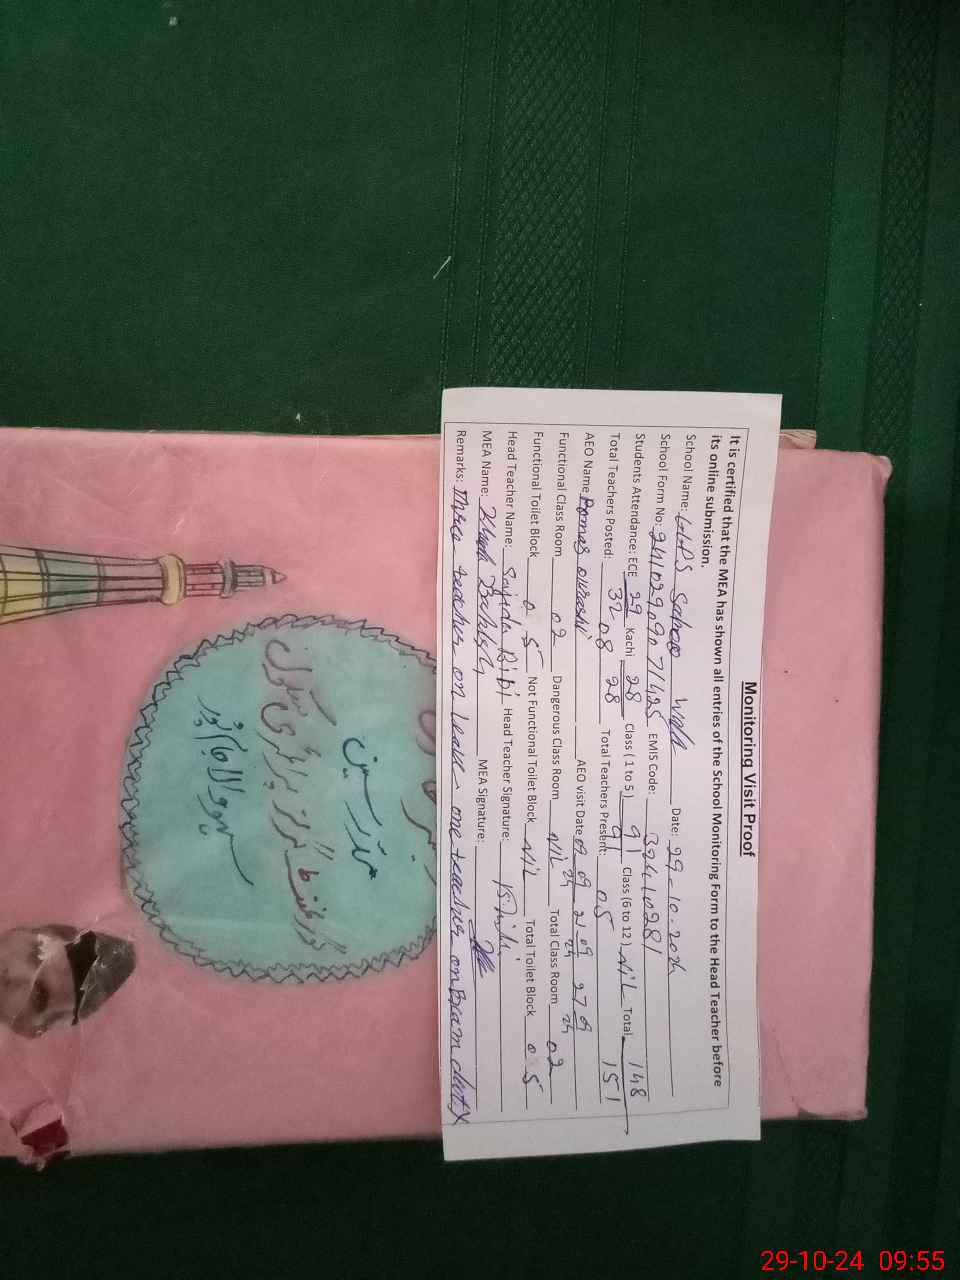 Monitoring Visit Proof
It is certified that the MEA has shown all entries of the School Monitoring Form to the Head Teacher before
its online submission.
School Name: GGPS Wala Date: 29-10-2024
School Form No: EMIS Code: 32410281
Students Attendance: ECE 29 Kachi 28 Class ( 1 to 5 ) 91 Class (6 to 12 ) Nil Total 148
32 28 91 151
Total Teachers Posted: 08 Total Teachers Present: 05
AEO Name AEO visit Date 09 21 09 27 09
24 24 24
Functional Class Room 02 Dangerous Class Room Nil Total Class Room 02
Functional Toilet Block 05 Not Functional Toilet Block Nil Total Toilet Block 05
Head Teacher Name: Sajida Bibi Head Teacher Signature:
MEA Name: Bakhsh MEA Signature:
Remarks: Three teacher on leave one teacher on Exam duty
مدرسین
گورنمنٹ گرلز پرائمری سکول
29-10-24 09:55